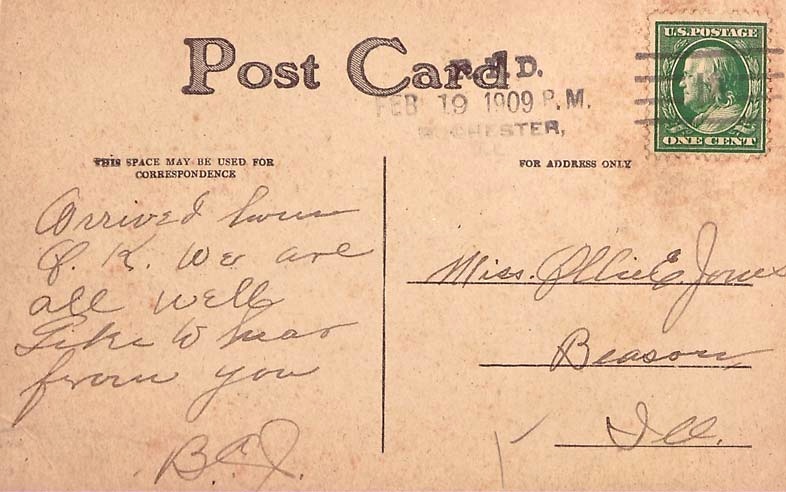 Post Card
R.F.D.
FEB 19 1909 P.M.
CHESTER,
U.S. POSTAGE
ONE CENT
THIS SPACE MAY BE USED FOR
CORRESPONDENCE
FOR ADDRESS ONLY
Arrived home
O.K. We are
all well
Like to hear
from you
B.C.J.
Miss. Ollie E. Jones
Beason,
Ill.